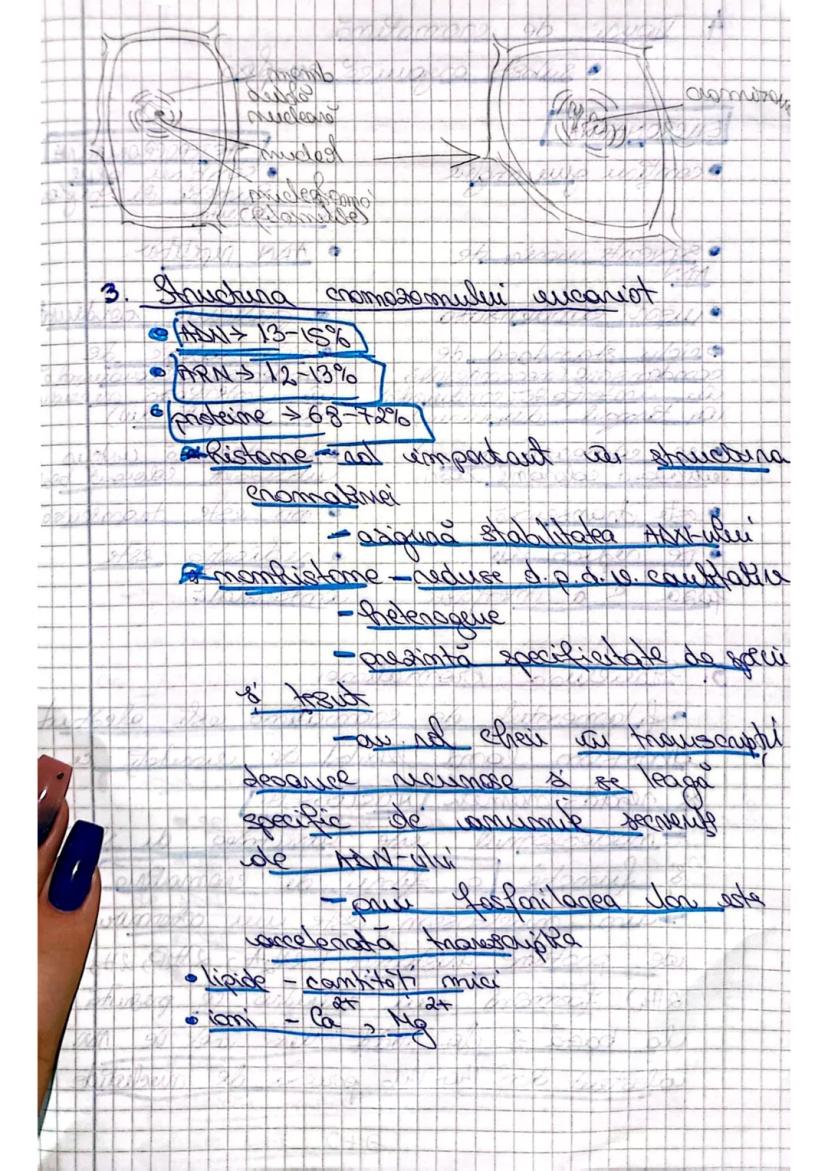 memb
dublă
nucleară
nucleol
cromozom
3. Structura cromozomului eucariot
• ADN → 13-15%
• ARN → 12-13%
• proteine → 68-72%
histone - rol important în structura
cromatinei
- asigură stabilitatea ADN-ului
nonhistone - reduse d.p.d.v. cantitativ
- heterogene
- prezintă specificitate de specii
și țesut
- au rol cheie în transcripți
deoarece recunosc și se leagă
specific de anumite secvențe
de ADN-ului
- prin fosforilarea lor este
accelerată transcripția
• lipide - cantități mici
• ioni - Ca²⁺, Mg²⁺